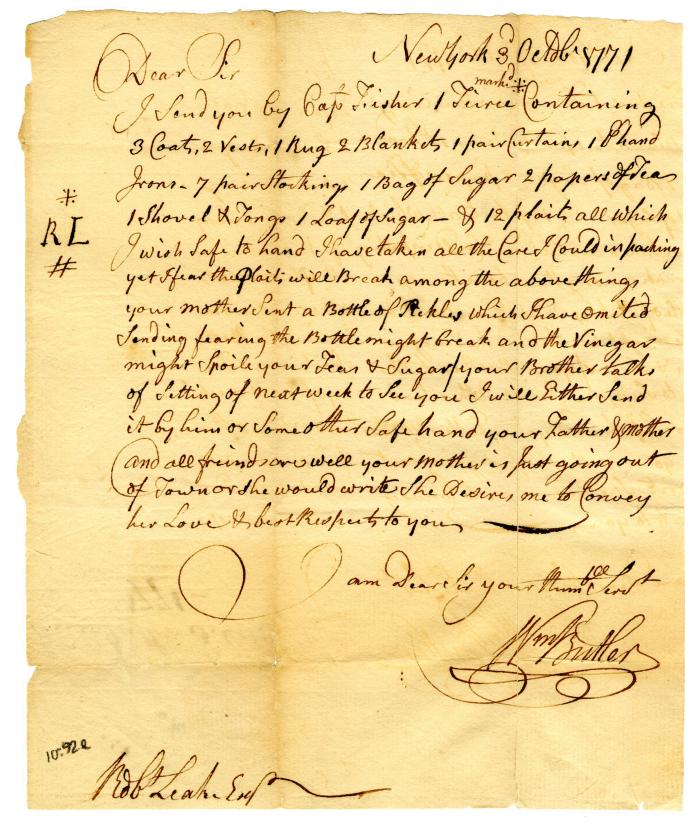 New York 3d Octobr 1771
Dear Sir
markd ※
I Send you by Capt Fisher 1 Tierce Containing
3 Coats, 2 Vests, 1 Rug 2 Blankets 1 pair Curtains 1 hand
Irons - 7 pair Stockings 1 Bag of Sugar 2 papers of Teas
1 Shovel & Tongs 1 Loaf of Sugar - & 12 plaits all which
I wish Safe to hand I have taken all the Care I Could in packing
yet I fear the Plaits will Break among the above things
your mother Sent a Bottle of Pickles which I have omited
Sending fearing the Bottle might break and the Vinegar
might Spoile your Teas & Sugar / your Brother talks
of Setting of next week to See you I will Either Send
it by him or Some other Safe hand your Father & mother
and all friends are well your Mother is Just going out
of Town or she would write She Desires me to Convey
her Love & best Respects to you
※
RL
#
I am Dear Sir your Humble Servt
Wm Butler
10.92a
Robt Leake Esqr